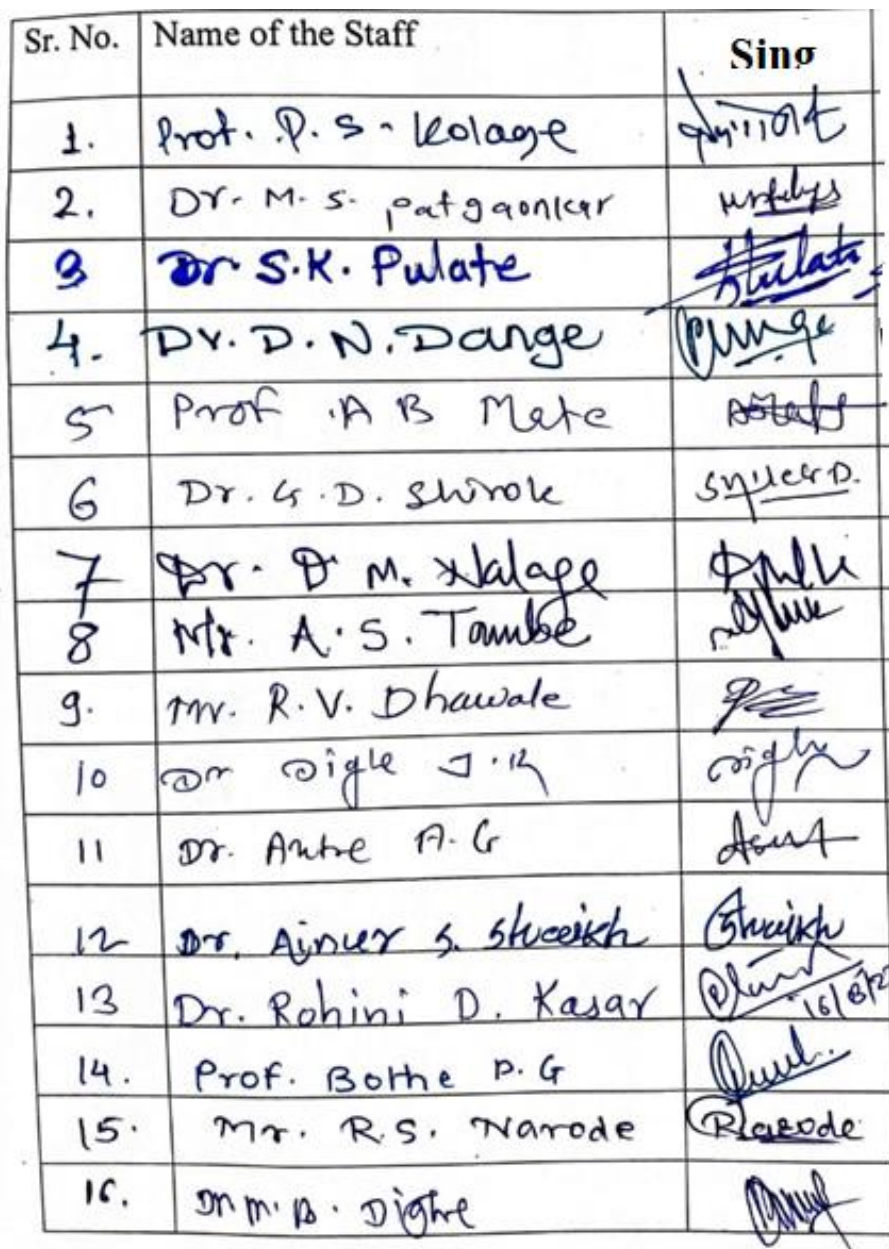 Sr. No. Name of the Staff Sing
1. Prof. P. S. Kolage
2. Dr. M. S. Patgaonkar
3 Dr S.K. Pulate Pulate
4. Dr. D. N. Dange
5 Prof. A B Mete
6 Dr. G. D. Shirole
7 Dr. D M. Nalage
8 Mr. A. S. Tambe
9. Mr. R. V. Dhawale
10 Dr Digle J. R
11 Dr. Antre A. G
12 Dr. S. Shaikh Shaikh
13 Dr. Rohini D. Kasar
14. Prof. Bothe P. G
15. Mr. R.S. Narode Rnarode
16. Dr M. B. Dighe